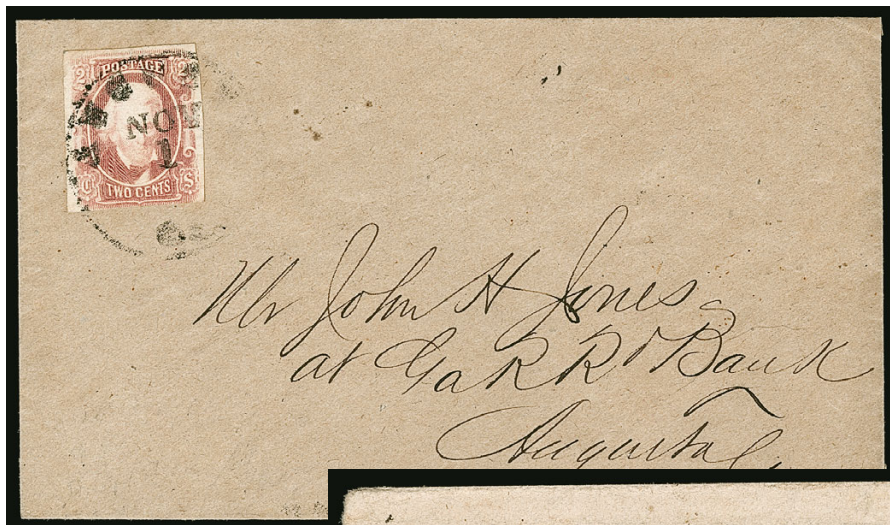 2 POSTAGE 2
NOV
1
C TWO CENTS S
Mr John H Jones
at Ga R R d Bank
Augusta